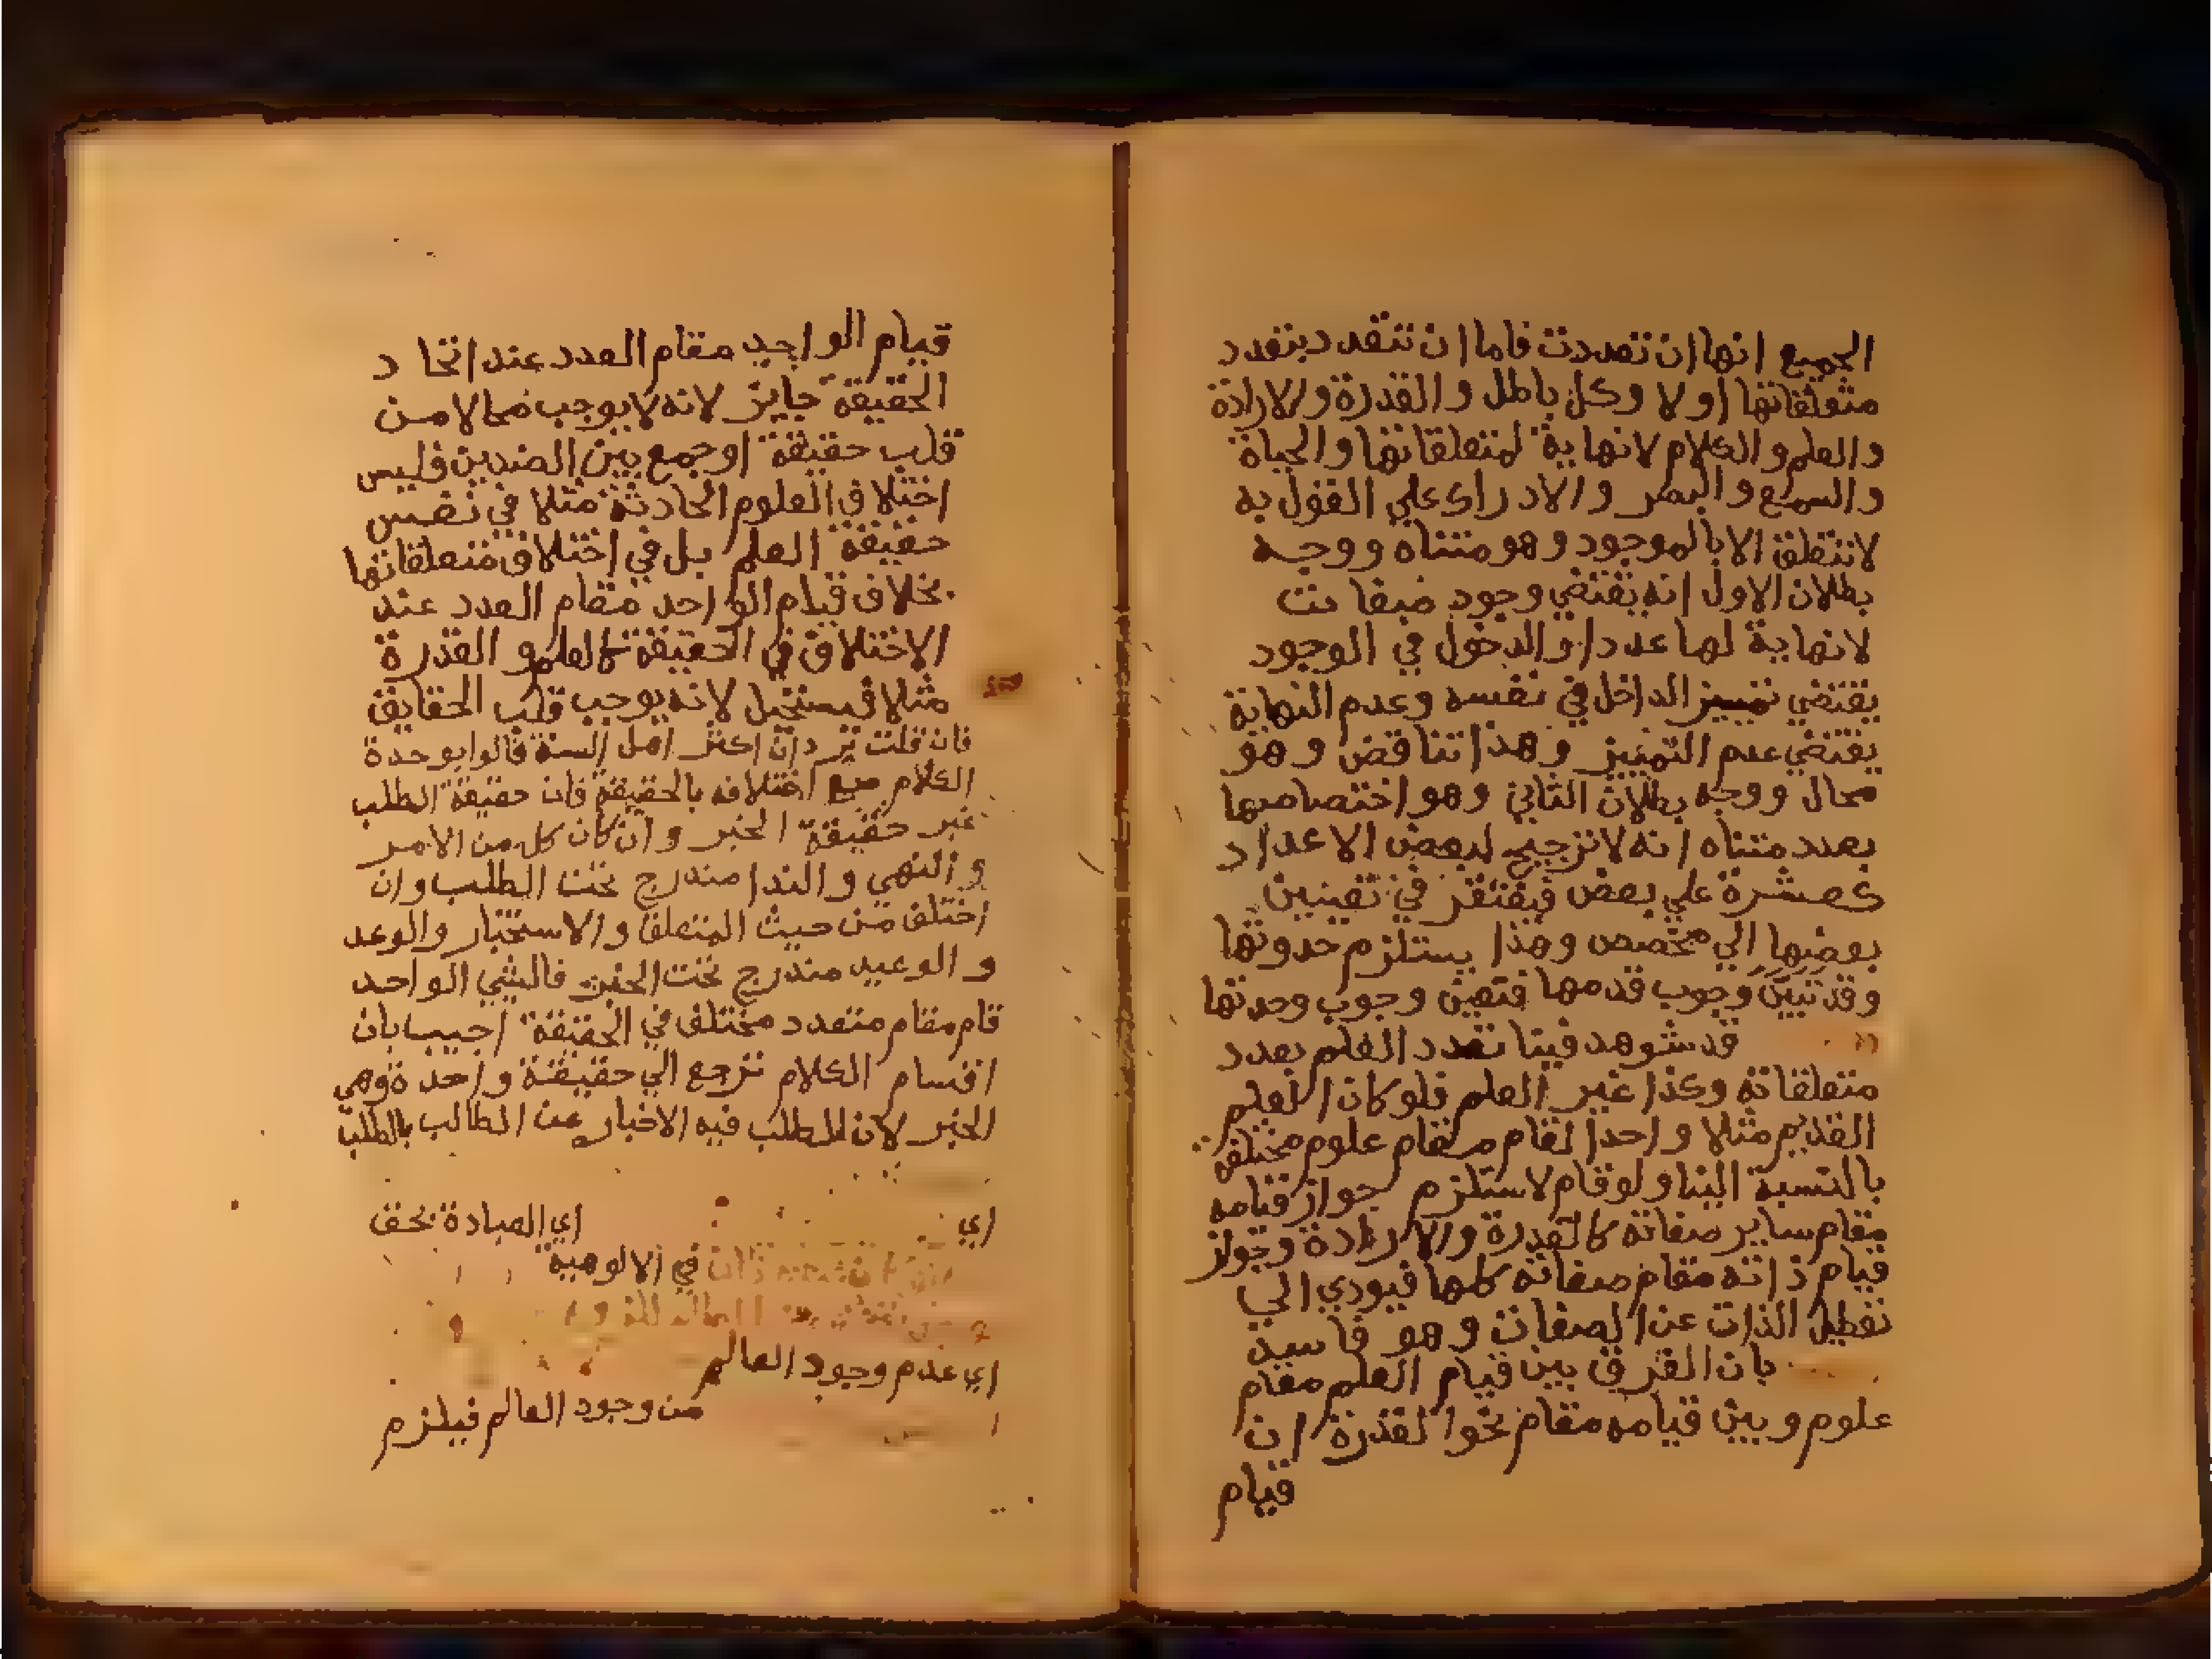 الجميع انها ان تعددت فاما ان تتعدد بتعدد
متعلقاتها او لا وكل باطل والقدرة والارادة
والعلم والكلام لانهاية لمتعلقاتها والحياة
والسمع والبصر والادراك علي القول به
لاتتعلق الا بالموجود وهو متناه ووجه
بطلان الاول انه يقتضي وجود صفات
لانهاية لها عددا والدخول في الوجود
يقتضي تمييز الداخل في نفسه وعدم النهاية
يقتضي عدم التمييز وهذا تناقض وهو
محال ووجه بطلان الثاني وهو اختصاصها
بعدد متناه انه لاترجيح لبعض الاعداد
كعشرة علي بعض فيفتقر في تعيين
بعضها الي مخصص وهذا يستلزم حدوثها
وقد تبين وجوب قدمها فتعين وجوب وحدتها
قد شوهد فينا تعدد العلم بعدد
متعلقاته وكذا غير العلم فلو كان العلم
القديم مثلا واحدا لقام مقام علوم مختلفة
بالنسبة الينا ولو قام لاستلزم جواز قيامه
مقام ساير صفاته كالقدرة والارادة وجواز
قيام ذاته مقام صفاته كلها فيودي الي
تعطيل الذات عن الصفات وهو فاسد
بان الفرق بين قيام العلم مقام
علوم وبين قيامه مقام نحو القدرة ان
قيام
قيام الواحد مقام العدد عند اتحاد
الحقيقة جايز لانه لايوجب محالا من
قلب حقيقة او جمع بين الضدين فليس
اختلاف العلوم الحادثة مثلا في نفس
حقيقة العلم بل في اختلاف متعلقاتها
بخلاف قيام الواحد مقام العدد عند
الاختلاف في الحقيقة كالعلم والقدرة
مثلا فيستحيل لانه يوجب قلب الحقايق
فان قلت يرد ان اكثر اهل السنة قالوا بوحدة
الكلام مع اختلافه بالحقيقة فان حقيقة الطلب
غير حقيقة الخبر وان كان كل من الامر
والنهي والندا مندرج تحت الطلب وان
اختلف من حيث المتعلق والاستخبار والوعد
والوعيد مندرج تحت الخبر فالشي الواحد
قام مقام متعدد مختلف في الحقيقة اجيب بان
اقسام الكلام ترجع الي حقيقة واحدة وهي
الخبر لان الطلب فيه الاخبار عن الطالب بالطلب
اي اي العبادة بحق
ذات في الالوهية
اي عدم وجود العالم
من وجود العالم فيلزم